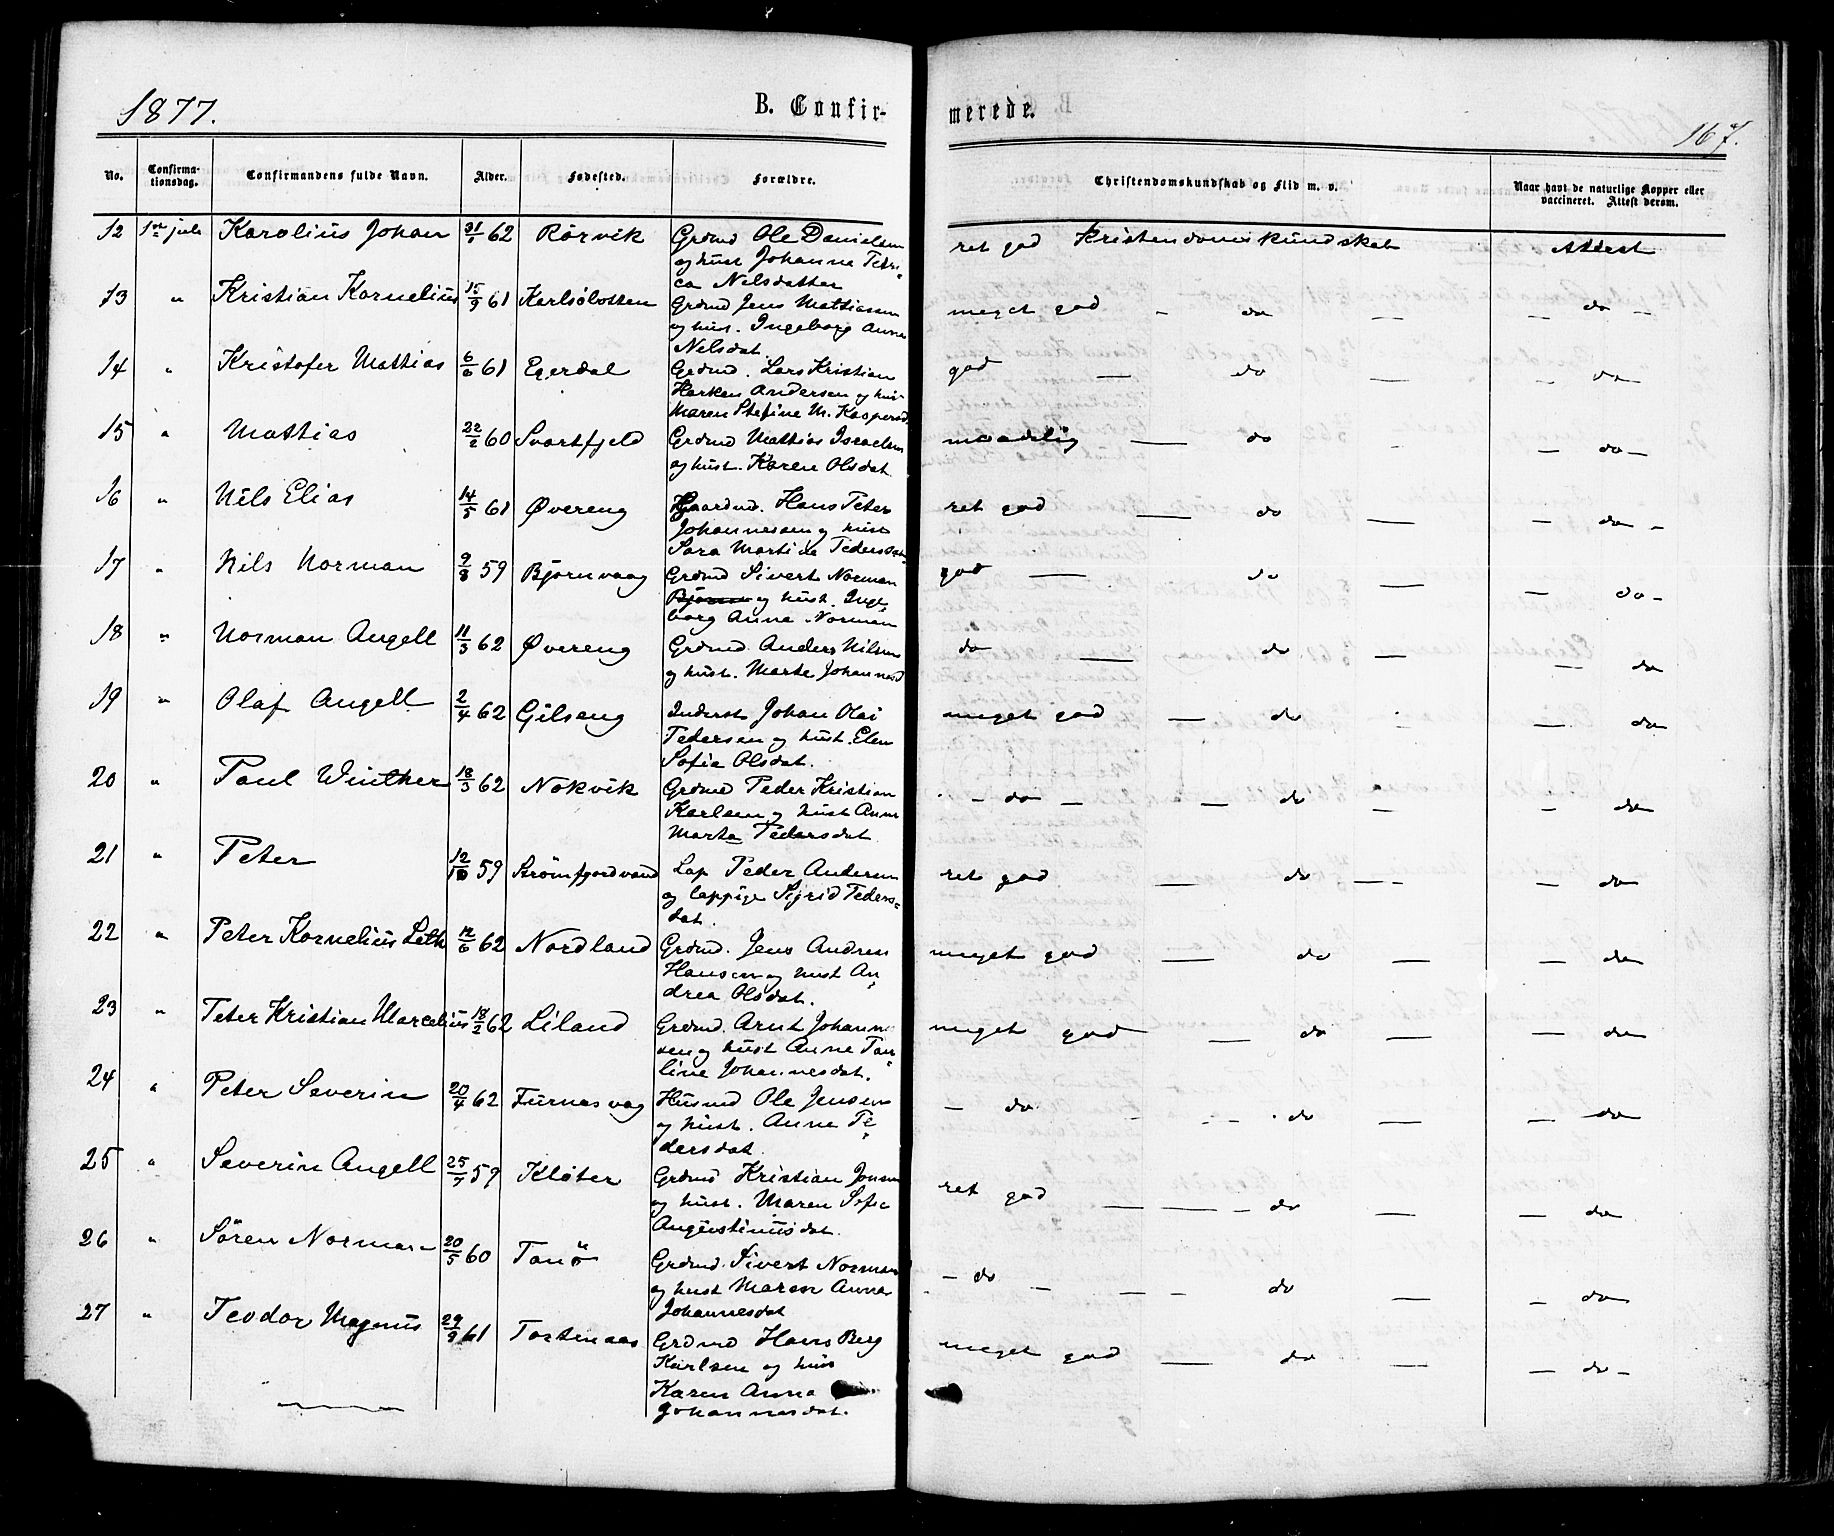 1877.
B. Confir-
merede.
167.
No.
Confirma-
tionsdag.
Confirmandens fulde Navn.
Alder.
Fødested.
Forældre.
Christendomskundskab og Flid m. v.
Naar havt de naturlige Kopper eller
vaccineret. Attest derom.
12 1ste juli Karolius Johan 31/1 62 Rörvik Grdmd Ole Danielsen ret god Kristendomskundskab Attest
og hust Johanne Petri-
ca Nelsdatter
13 " Kristian Kornelius 15/9 61 Karlsöbotten Grdmd Jens Mattiassen meget god - do — — do -
og hust. Ingeborg Anna
Nelsdat.
14 " Kristofer Mattias 6/6 61 Egerdal Grdmd. Lars Kristian god — do — - do -
Harken Andersen og hus-
Maren Stefine M. Kaspersd
15 " Mattias 22/2 60 Svartfjeld Grdmd Mattias Israelsen maadelig — do — - do -
og hust. Karen Olsdat.
16 " Nils Elias 14/5 61 Övereng Gaardmd. Hans Peter ret god — do — - do -
Johannesen og hust
Sara Martine Pedersdat.
17 " Nils Norman 9/8 59 Bjornvaag Grdmd Sivert Norman god — do — - do -
og hust. Inge-
borg Anna Norman
18 " Norman Angell 11/3 62 Övereng Grdmd. Anders Nilsen do — do — - do
og hust. Marte Johannesd
19 " Olaf Angell 2/4 62 Gilseng Inderst Johan Olai meget god — do - — do
Pedersen og hust. Elen
Sofie Olsdat.
20 " Paul Winther 18/3 62 Nokvik Grdmd Peder Kristian - do - — do — - do
Karlsen og hust Anne
Marta Pedersdat.
21 " Peter 12/10 59 Strömfjordvand Lap Peder Andersen ret god — do — - - do
og lappige Sigrid Peders-
dat.
22 " Peter Kornelius Leth 12/6 62 Nordland Grdmd. Jens Andreas meget god — do — - do
Hansen og hust An-
drea Olsdat.
23 " Peter Kristian Marcelius 18/2 62 Liland Grdmd. Arnt Johanne- meget god — do — — do
sen og hust Anne Pau-
line Johannesdat.
24 " Peter Severin 20/4 62 Furnesvag Husmd Ole Jensen - do - - do — — do
og hust. Anne Pe-
dersdat.
25 " Severin Angell 25/7 59 Klöter Grdmd Kristian Jonsen ret god — — - do — — do
og hust. Maren Sofie
Augustinusdat.
26 " Sören Norman 20/5 60 Tanö Grdmd. Sivert Norman - do - - - do — - do
og hust Maren Anna
Johannesdat
27 " Teodor Magnus 29/9 61 Tortenaas Grdmd Hans Berg meget god — do — - do -
Karlsen og hus
Karen Anna
Johannesdat.